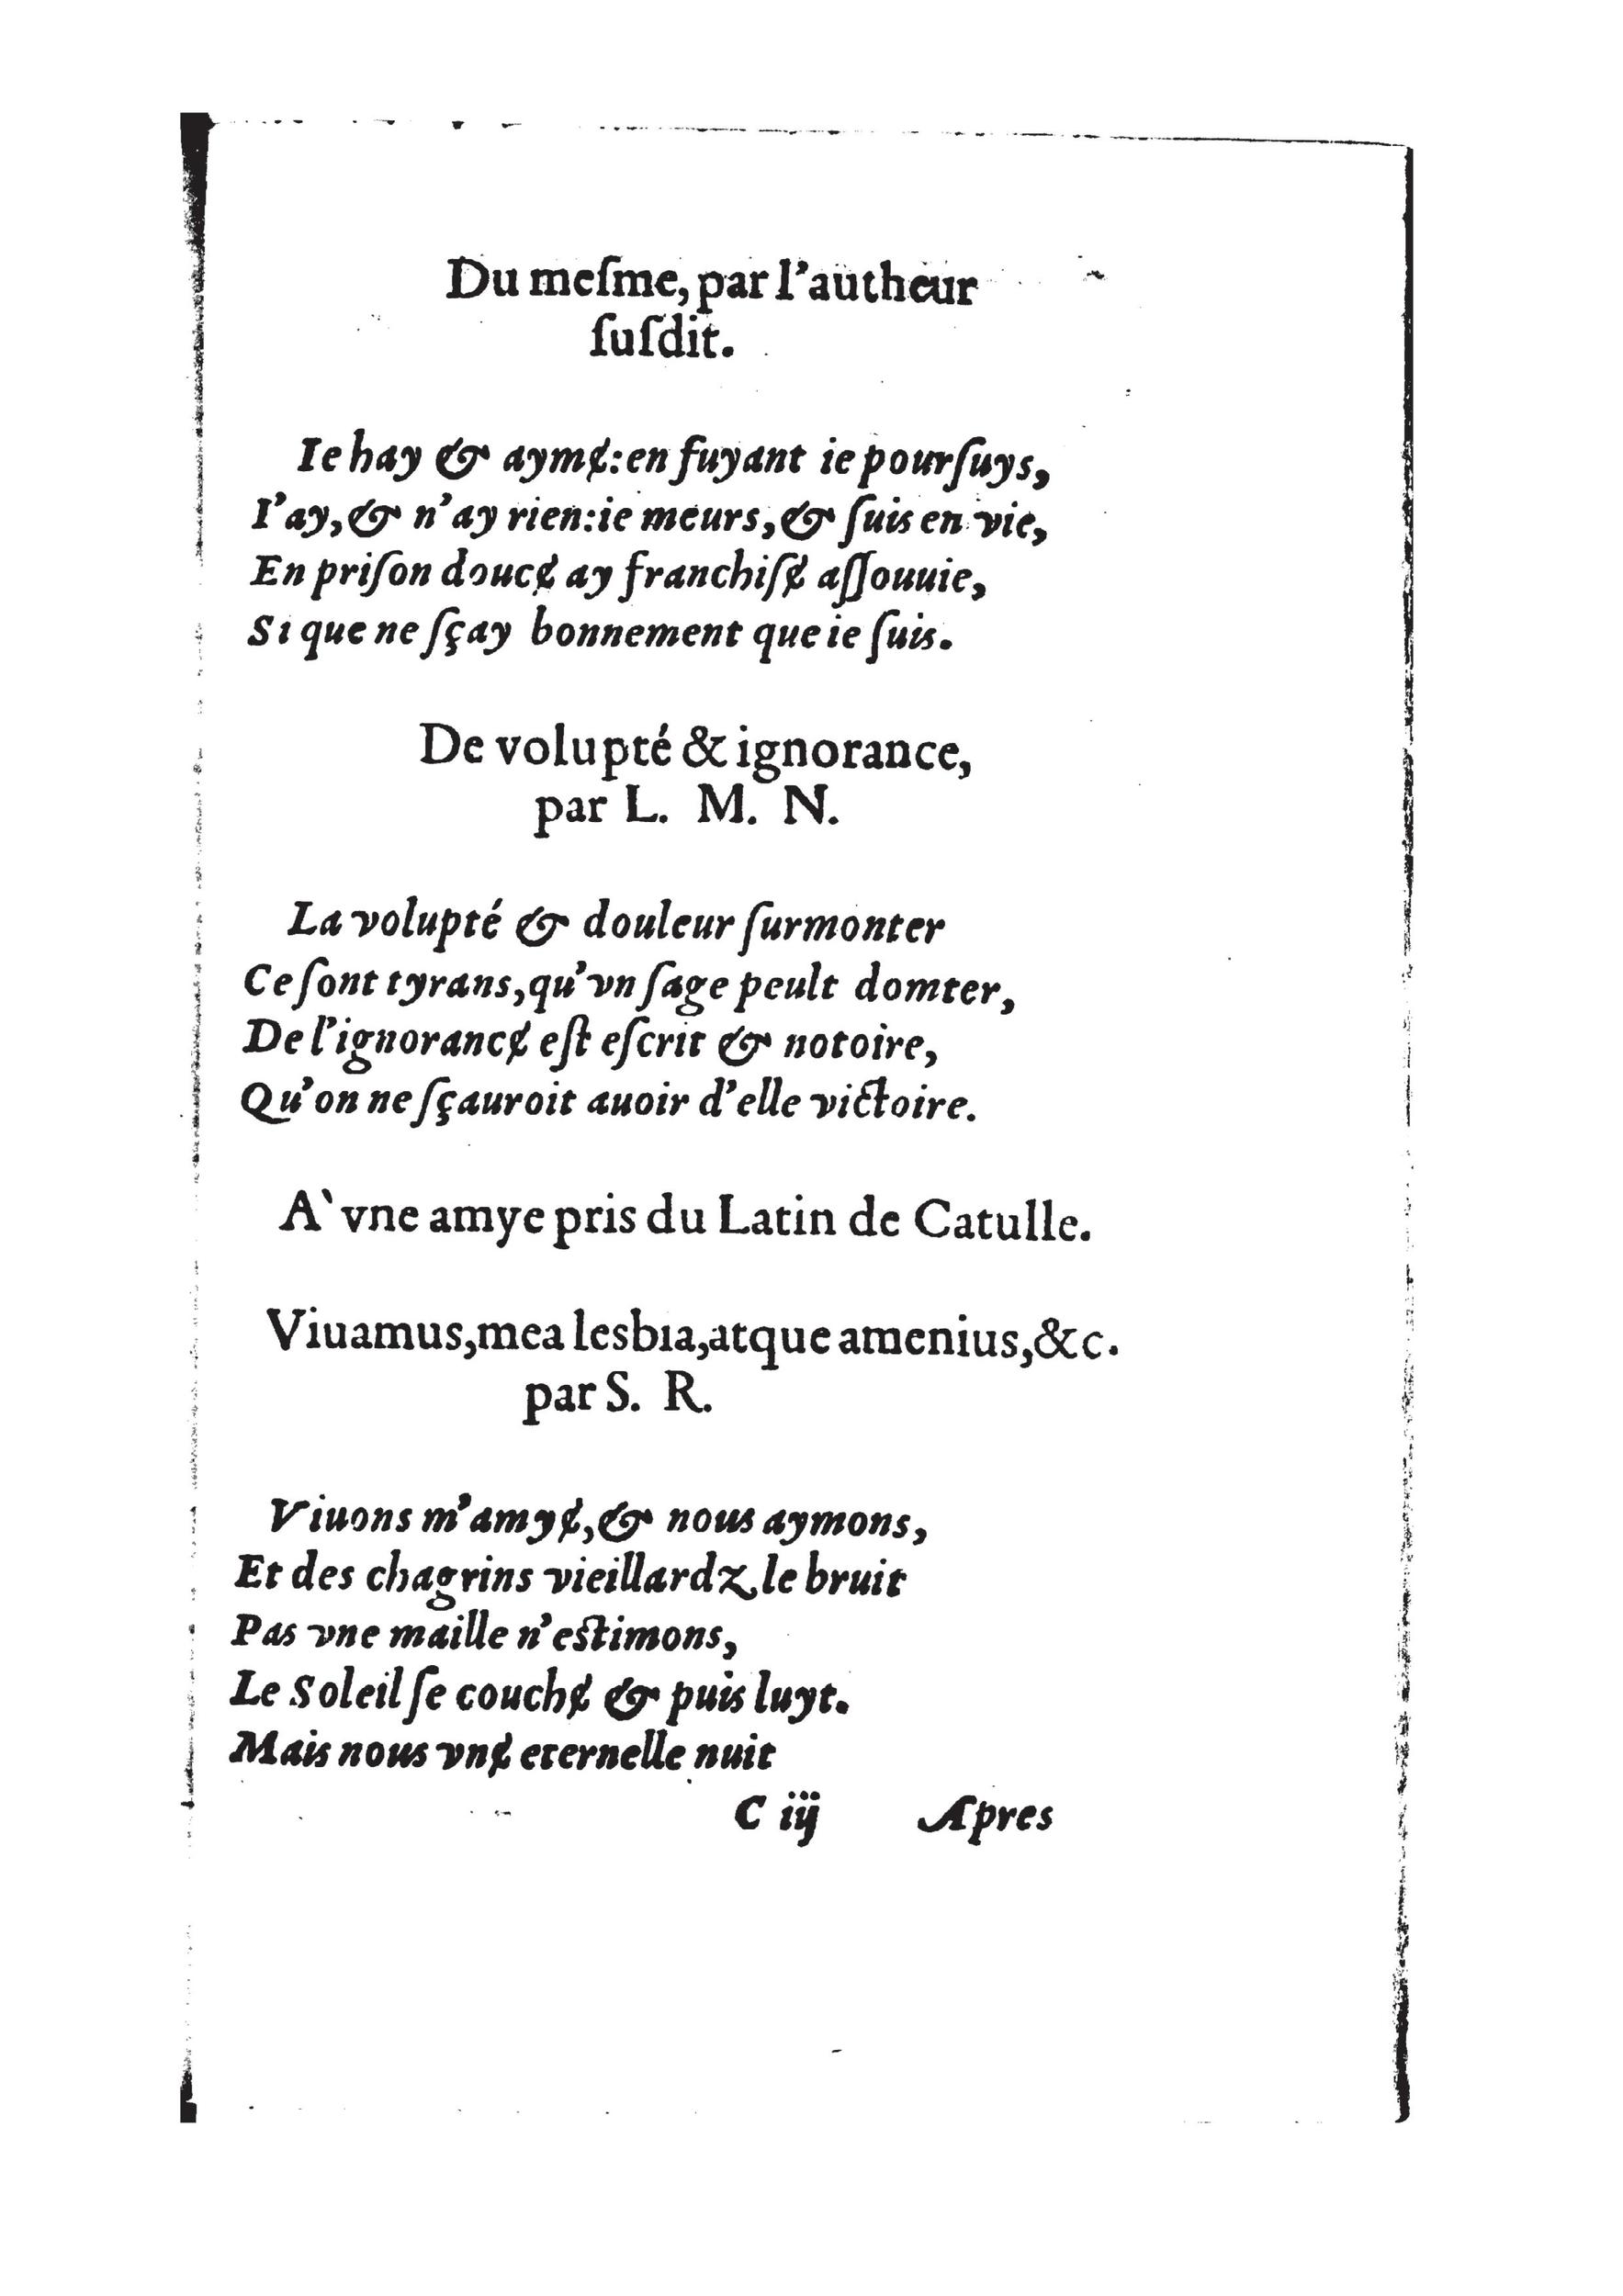 Du meſme, par l'autheur
ſuſdit.
Ie hay & aymɇ: en fuyant ie pourſuys,
I'ay, & n'ay rien: ie meurs, & ſuis en vie,
En priſon doucɇ ay franchiſɇ aſſouuie,
Si que ne ſçay bonnement que ie ſuis.
De volupté & ignorance,
par L. M. N.
La volupté & douleur ſurmonter
Ce ſont tyrans, qu'vn ſage peult domter,
De l'ignorancɇ eſt eſcrit & notoire,
Qu'on ne ſçauroit auoir d'elle victoire.
A` vne amye pris du Latin de Catulle.
Viuamus, mea lesbia, atque amenius, &c.
par S. R.
Viuons m'amyɇ, & nous aymons,
Et des chagrins vieillardz le bruit
Pas vne maille n'estimons,
Le Soleil ſe couchɇ & puis luyt.
Mais nous vnɇ eternelle nuit
C iij Apres